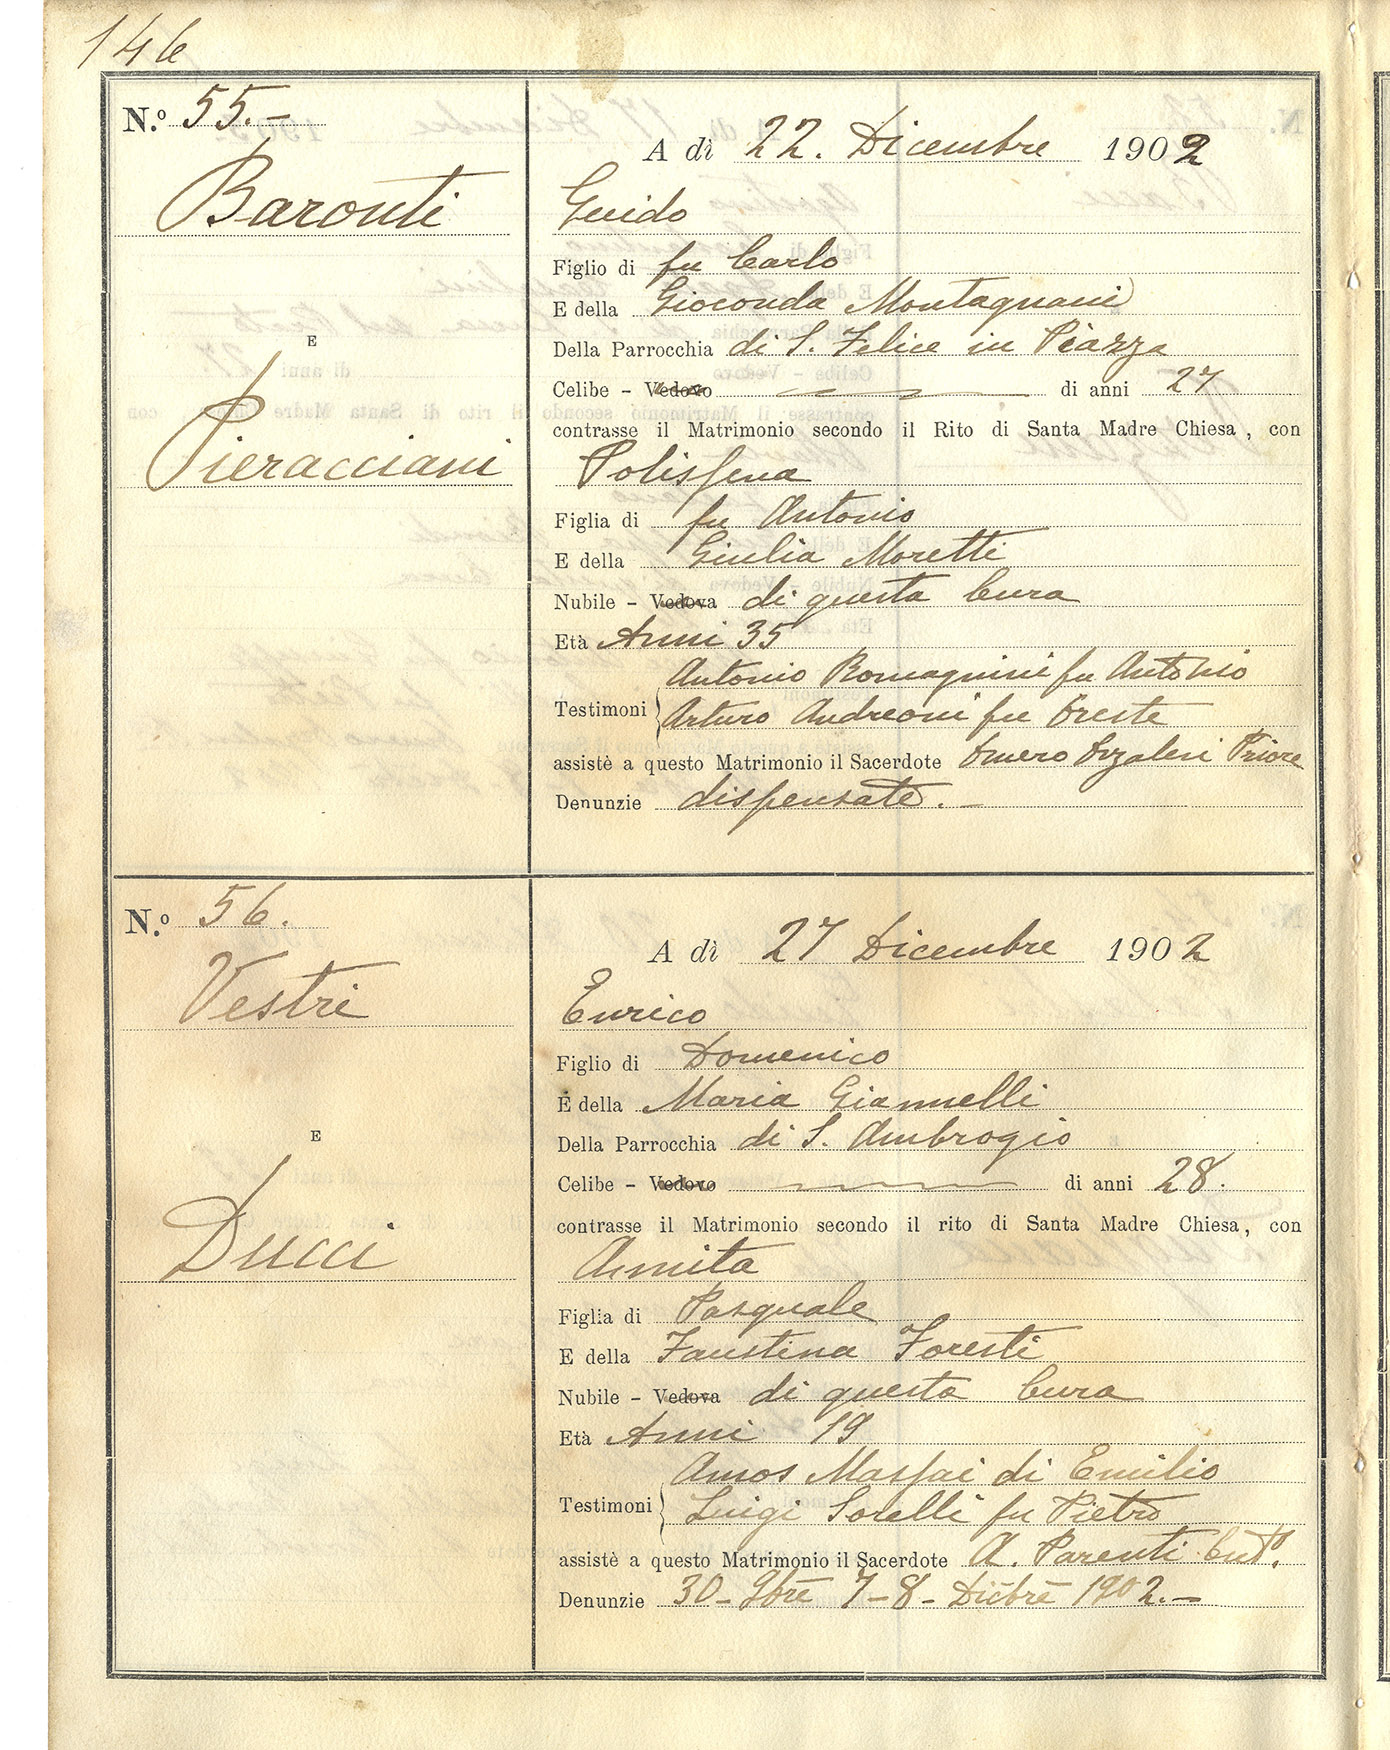 146
N.º 55.-
A dì 22. Dicembre 1902
Baronti
Guido
Figlio di fu Carlo
E della Gioconda Montagnani
E
Della Parrocchia di S. Felice in Piazza
Celibe - Vedovo di anni 27
contrasse il Matrimonio secondo il Rito di Santa Madre Chiesa, con
Pieracciani
Polissena
Figlia di fu Antonio
E della Giulia Moretti
Nubile - Vedova di questa Cura
Età Anni 35
Antonio Romagnini fu Antonio
Testimoni Arturo Andreoni fu Oreste
assistè a questo Matrimonio il Sacerdote Omero Orzalesi Priore
Denunzie dispensate.-
N.º 56.
A dì 27 Dicembre 1902
Vestri
Enrico
Figlio di Domenico
E della Maria Giannelli
E
Della Parrocchia di S. Ambrogio
Celibe - Vedovo di anni 28.
contrasse il Matrimonio secondo il rito di Santa Madre Chiesa, con
Ducci
Annita
Figlia di Pasquale
E della Faustina Foresti
Nubile - Vedova di questa Cura
Età Anni 19
Amos Massai di Emilio
Testimoni Luigi Sorelli fu Pietro
assistè a questo Matrimonio il Sacerdote A. Parenti
Denunzie 30 - 9bre 7 - 8 - Dicbre 1902.-